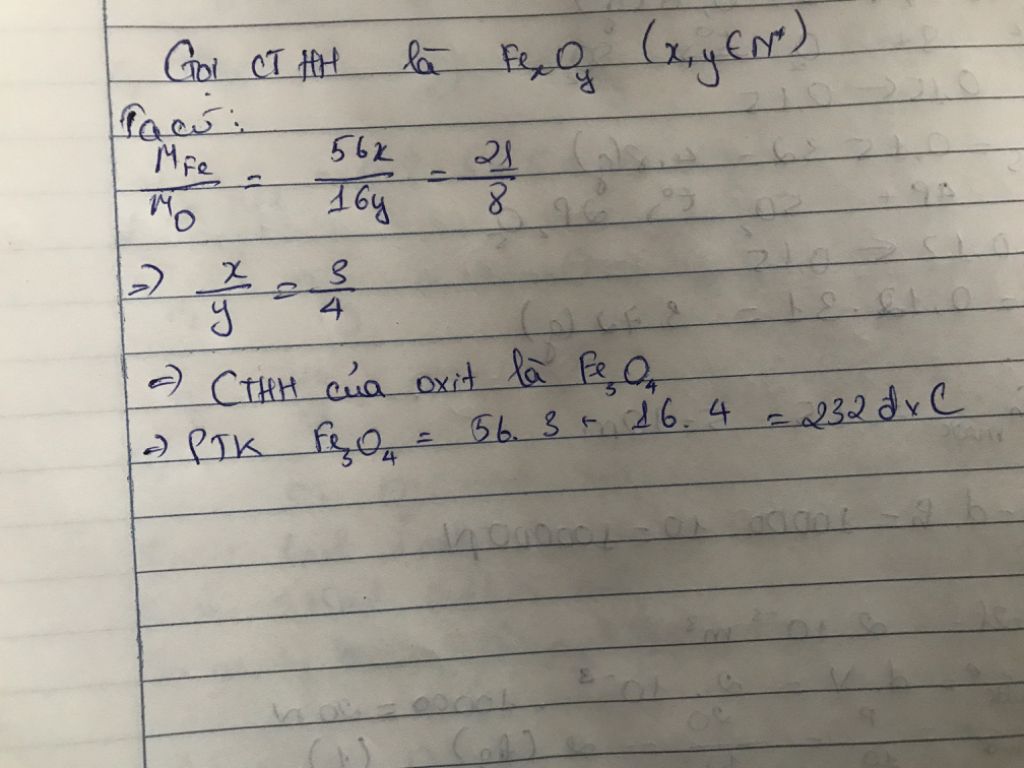 Gọi CTHH là FexOy (x,y∈N*)
Ta có:
MFe/MO = 56x/16y = 21/8
=> x/y = 3/4
=> CTHH của oxit là Fe3O4
=> PTK Fe3O4 = 56.3 + 16.4 = 232 đvC